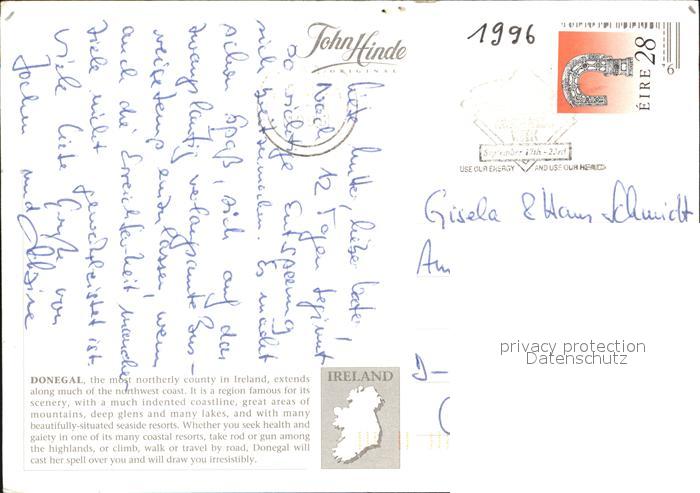 John Hinde
ORIGINAL
1996
ÉIRE 28
September 17th - 23rd
USE OUR ENERGY AND USE OUR HEAD
Liebe Mutti, lieber Vater!
Nach 12 Tagen beginnt
so richtige Entspannung
sich breitzumachen. Es macht
schon Spaß, sich auf das
zwangsläufig verlangsamte
einzulassen, wenn
auch die Erreichbarkeit mancher
Ziele nicht gewährleistet ist.
Viele liebe Grüße von
Jochen und
Gisela & Hans Schmidt
Am
D-
privacy protection
Datenschutz
DONEGAL, the most northerly county in Ireland, extends
along much of the northwest coast. It is a region famous for its
scenery, with a much indented coastline, great areas of
mountains, deep glens and many lakes, and with many
beautifully-situated seaside resorts. Whether you seek health and
gaiety in one of its many coastal resorts, take rod or gun among
the highlands, or climb, walk or travel by road, Donegal will
cast her spell over you and will draw you irresistibly.
IRELAND